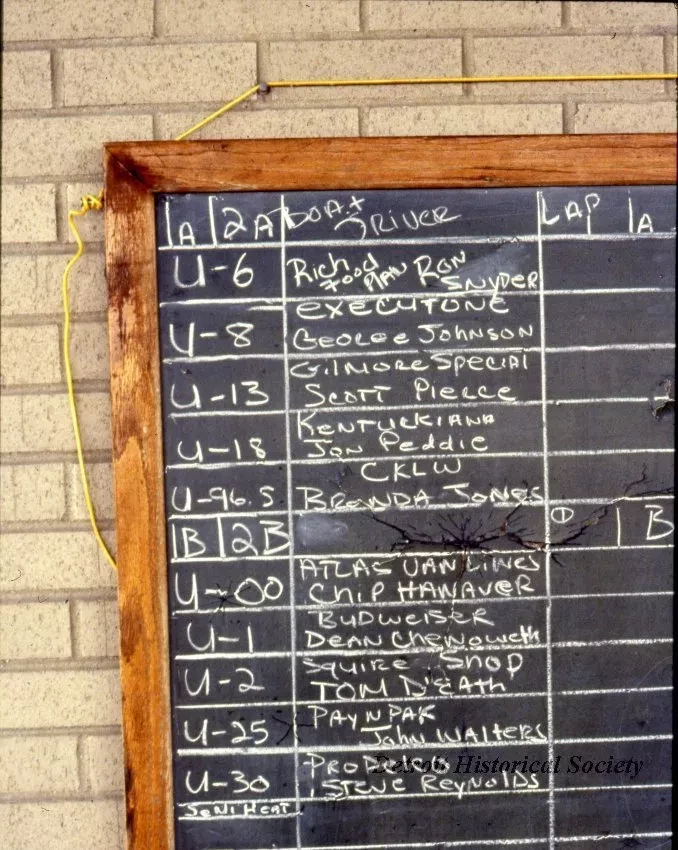 1A 2A BOAT DRIVER LAP 1A
U-6 Rich Food Plan Ron Snyder
EXECUTONE
U-8 GEORGE JOHNSON
GILMORE SPECIAL
U-13 SCOTT PIERCE
KENTUCKIANA
U-18 JON Peddie
CKLW
U-96.5 BRENDA JONES
1B 2B 1 B
ATLAS VAN LINES
U-00 CHIP HANAUER
BUDWEISER
U-1 DEAN Chenoweth
SQUIRE SHOP
U-2 TOM D'EAth
PAY N PAK
U-25 John WALTERS
U-30 STEVE REYNOLDS
Detroit Historical Society